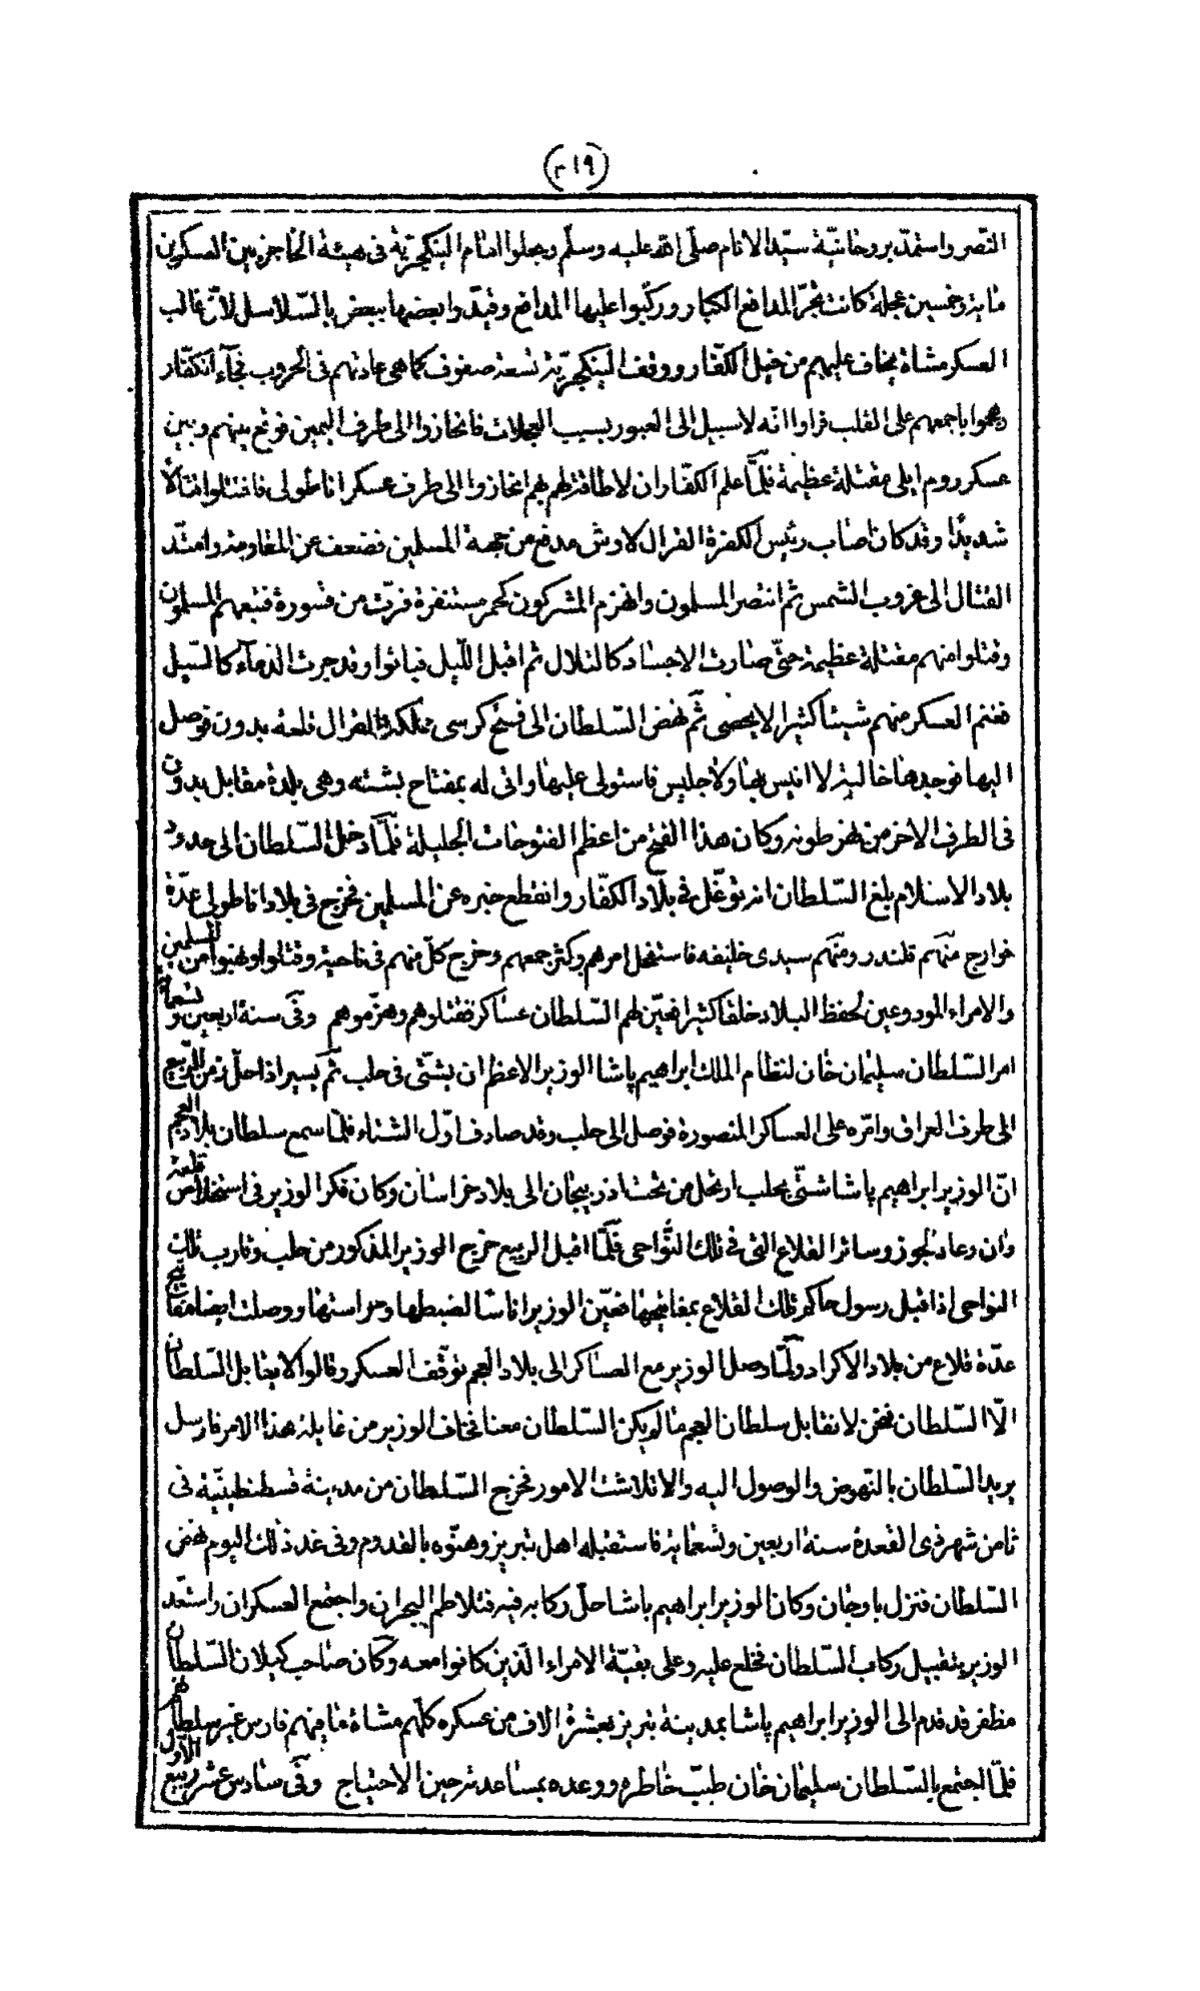 (٣١٩)
النّصر واستمدّ بروحانيّة سيّد الانام صلّى الله عليه وسلّم وجعلوا امام الينكيجريّة فى هيئة الحاجز بين العسكرين
مايه وخمسين عجلة كانت تجرّ المدافع الكبار وركّبوا عليها المدافع وقيّدوا بعضها ببعض بالسّلاسل لانّ غالب
العسكر مشاة يخاف عليهم من خيل الكفّار ووقف الينكيجريّة تسعة صفوف كما هى عادتهم فى الحروب فجآء الكفّار
وهجموا باجمعهم على القلب فراوا انّه لا سبيل الى العبور بسبب العجلات فانحازوا الى طرف اليمين فوقع بينهم وبين
عسكر روم ايلى مقتلة عظيمة فلمّا علم الكفّار ان لا طاقة لهم بهم انحازوا الى طرف عسكر اناطولى فاقتتلوا قتالاً
شديدًا وقد كان اصاب رئيس الكفرة القرال لاوش مدفع من جهة المسلمين فضعف عن المقاومة وامتدّ
القتال الى غروب الشمس ثم انتصر المسلمون وانهزم المشركون كحمر مستنفرة فرّت من قسورة فتبعهم المسلمون
وقتلوا منهم مقتلة عظيمة حتّى صارت الاجساد كالتلال ثم اقبل اللّيل فباتوا وقد جرت الدمآء كالسّيل
فغنم العسكر منهم شيئا كثيرا لا يحصى ثم نهض السّلطان الى فتح كرسى مملكة القرال قلعة بدون فوصل
اليها فوجدها خالية لا انيس بها ولا جليس فاستولى عليها واتى له بمفتاح بشته وهى بلدة مقابل بدون
فى الطرف الاخر من نهر طونه وكان هذا الفتح من اعظم الفتوحات الجليلة فلمّا دخل السّلطان الى حدود
بلاد الاسلام بلغ السّلطان انه توغّل فى بلاد الكفّار وانقطع خبره عن المسلمين فخرج فى بلاد اناطولى عدّة
خوارج منهم قلندر ومنهم سيدى خليفه فاستفحل امرهم وكثر جمعهم وخرج كلّ منهم فى ناحية وقتلوا ونهبوا من المسلمين
والامراء المودوعين لحفظ البلاد خلقا كثيرا فعيّن لهم السّلطان عساكر فقتلوهم وهزموهم وفى سنة اربعين وتسعمايه
امر السّلطان سليمان خان لنظام الملك ابراهيم پاشا الوزير الاعظم ان يشتّى فى حلب ثم يسير اذا حلّ زمن الرّبيع
الى طرف العراق وامّره على العساكر المنصورة فوصل الى حلب وقد صادف اوّل الشتاء فلمّا سمع سلطان بلاد العجم
انّ الوزير ابراهيم پاشا شتّى بحلب ارتحل من تخت اذربيجان الى بلاد خراسان وكان فكر الوزير فى استخلاص قلعة
وان وعاد لجوز وسائر القلاع التى فى تلك النّواحى فلمّا اقبل الربيع خرج الوزير المذكور من حلب وقارب تلك
النواحى اذ اقبل رسول حاكم تلك القلاع بمفاتيحها فعيّن الوزير اناسا لضبطها وحراستها ووصلت ايضا مفاتيح
عدّة قلاع من بلاد الاكراد ولمّا وصل الوزير مع العساكر الى بلاد العجم توقّف العسكر وقالوا لا يقابل السّلطان
الّا السّلطان فنحن لا نقابل سلطان العجم ما لم يكن السّلطان معنا فخاف الوزير من غايلة هذا الامر فارسل
بريد السّلطان بالنّهوض والوصول اليه والا تلاشت الامور فخرج السّلطان من مدينة قسطنطينيّة فى
ثامن شهر ذى القعدة سنة اربعين وتسعمايه فاستقبله اهل تبريز وهنّوه بالقدوم وفى غد ذلك اليوم نهض
السّلطان فنزل باوجان وكان الوزير ابراهيم پاشا حلّ ركابه فيه فتلاطم البحران واجتمع العسكران واستعّد
الوزير بتقبيل ركاب السّلطان فخلع عليه وعلى بقيّة الامراء الّذين كانوا معه وكان صاحب كيلان السّلطان
مظفر قد قدم الى الوزير ابراهيم پاشا بمدينة تبريز بعشرة الاف من عسكره كلّهم مشاة ما منهم فارس غير سلطانهم
فلمّا اجتمع بالسّلطان سليمان خان طيّب خاطره ووعده بمساعدته حين الاحتياج وفى سادس عشر ربيع الاول